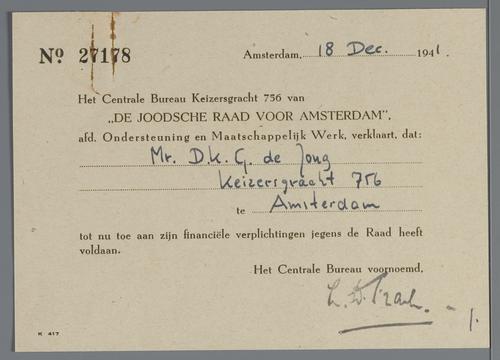 No 27178
Amsterdam, 18 Dec. 1941.
Het Centrale Bureau Keizersgracht 756 van
„DE JOODSCHE RAAD VOOR AMSTERDAM”,
afd. Ondersteuning en Maatschappelijk Werk, verklaart, dat:
Mr. D.K.G. de Jong
Keizersgracht 756
te Amsterdam
tot nu toe aan zijn financiële verplichtingen jegens de Raad heeft
voldaan.
Het Centrale Bureau voornoemd,
K 417